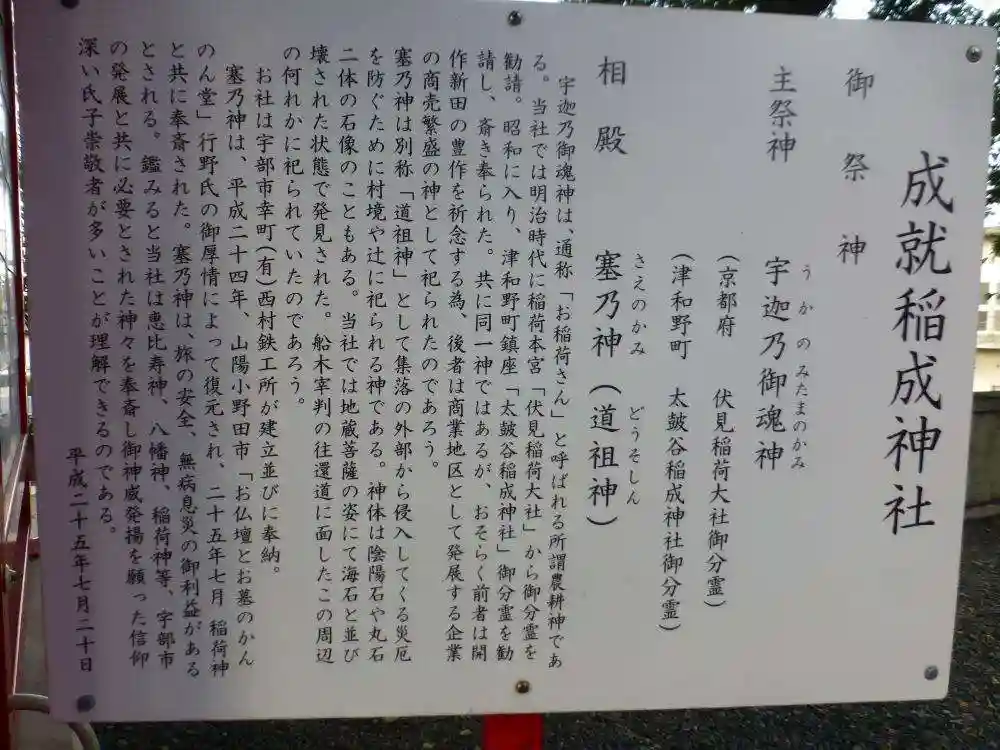 成就稲成神社
御祭神
主祭神 宇迦乃御魂神
うかのみたまのかみ
(京都府 伏見稲荷大社御分霊)
(津和野町 太皷谷稲成神社御分霊)
相殿 塞乃神(道祖神)
さえのかみ どうそしん
宇迦乃御魂神は、通称「お稲荷さん」と呼ばれる所謂農耕神であ
る。当社では明治時代に稲荷本宮「伏見稲荷大社」から御分霊を
勧請。昭和に入り、津和野町鎮座「太皷谷稲成神社」御分霊を勧
請し、斎き奉られた。共に同一神ではあるが、おそらく前者は開
作新田の豊作を祈念する為、後者は商業地区として発展する企業
の商売繁盛の神として祀られたのであろう。
塞乃神は別称「道祖神」として集落の外部から侵入してくる災厄
を防ぐために村境や辻に祀られる神である。神体は陰陽石や丸石
二体の石像のこともある。当社では地蔵菩薩の姿にて海石と並び
壊された状態で発見された。船木宰判の往還道に面したこの周辺
の何れかに祀られていたのであろう。
お社は宇部市幸町(有)西村鉄工所が建立並びに奉納。
塞乃神は、平成二十四年、山陽小野田市「お仏壇とお墓のかん
のん堂」行野氏の御厚情によって復元され、二十五年七月 稲荷神
と共に奉斎された。塞乃神は、旅の安全、無病息災の御利益がある
とされる。鑑みると当社は恵比寿神、八幡神、稲荷神等、宇部市
の発展と共に必要とされた神々を奉斎し御神威発揚を願った信仰
深い氏子崇敬者が多いことが理解できるのである。
平成二十五年七月二十日